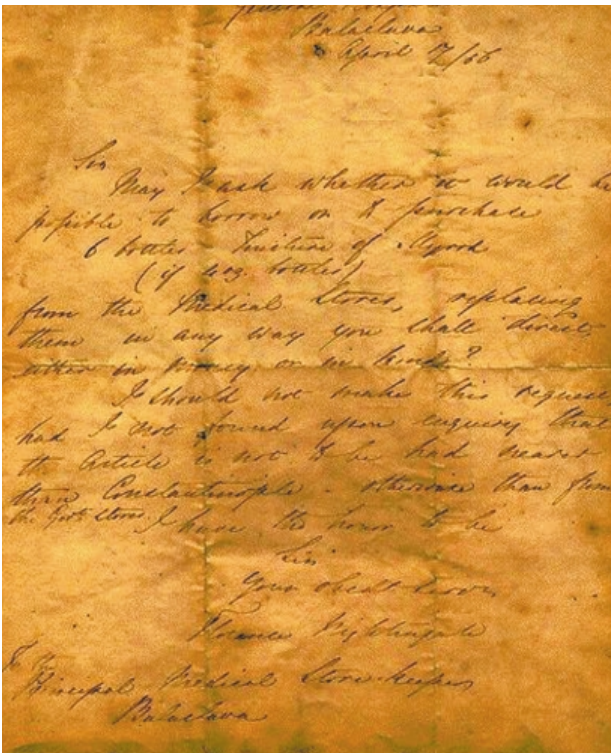 General Hospital
Balaclava
April 7/56
Sir
May I ask whether it would be
possible to borrow or to purchase
6 bottles Tincture of Myrrh
(if 4 oz. bottles)
from the Medical Stores, replacing
them in any way you shall direct,
either in money or in kind?
I should not make this request
had I not found upon enquiry that
the article is not to be had nearer
than Constantinople - otherwise than from
the Govt. Stores. I have the honor to be
Sir
Your obedt servt
Florence Nightingale
To the
Principal Medical Store-keeper
Balaclava